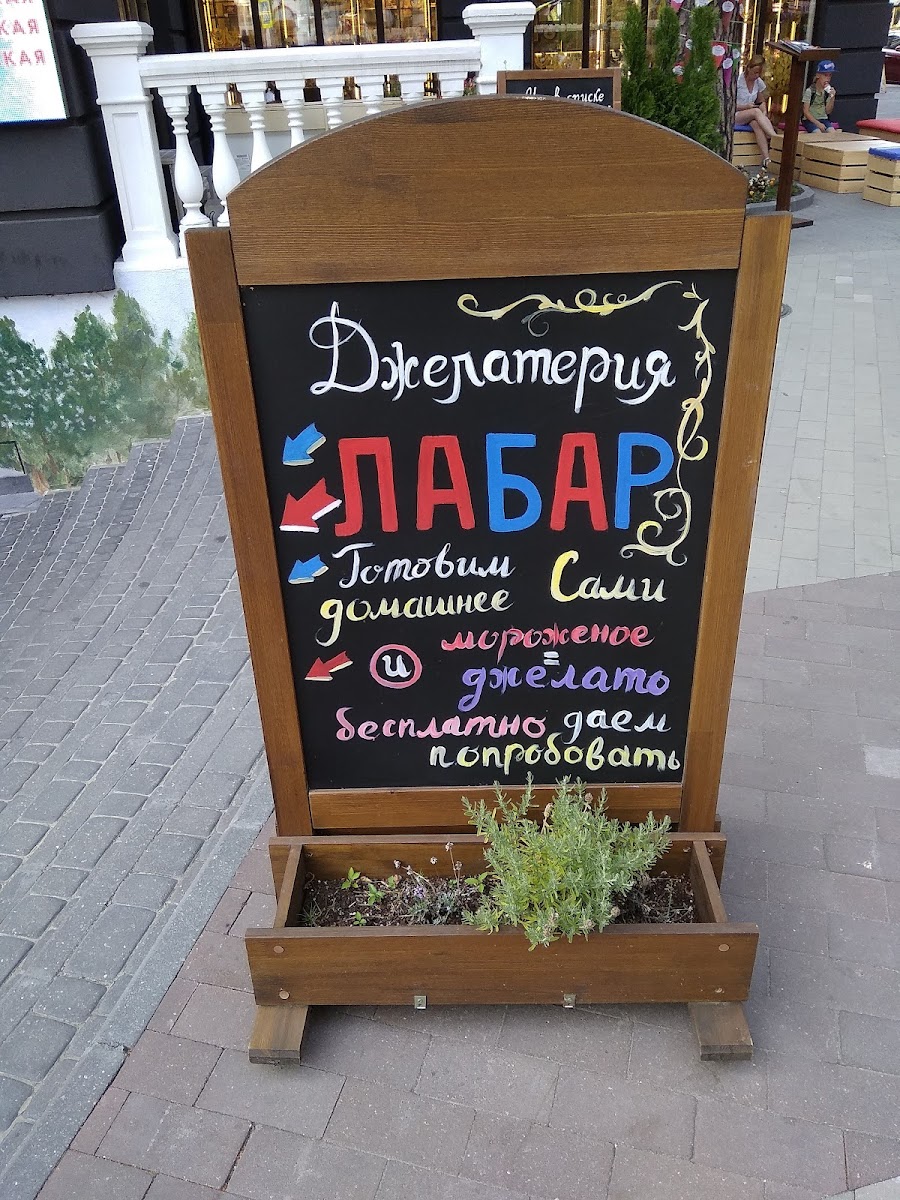 КАЯ
КАЯ
Джелатерия
ЛАБАР
Готовим Сами
домашнее
мороженое
и =
джелато
бесплатно даем
попробовать